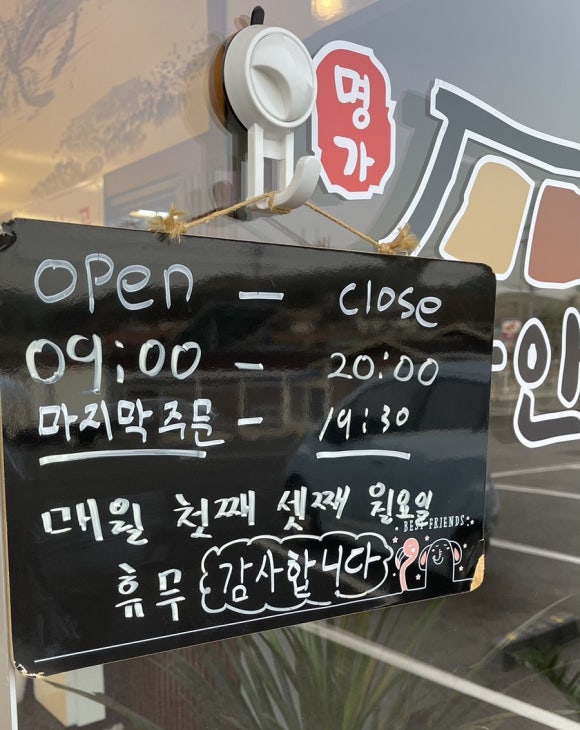 명가
open - close
09:00 - 20:00
마지막주문 - 19:30
매일 첫째 셋째 월요일
BEST FRIENDS
휴무 감사합니다